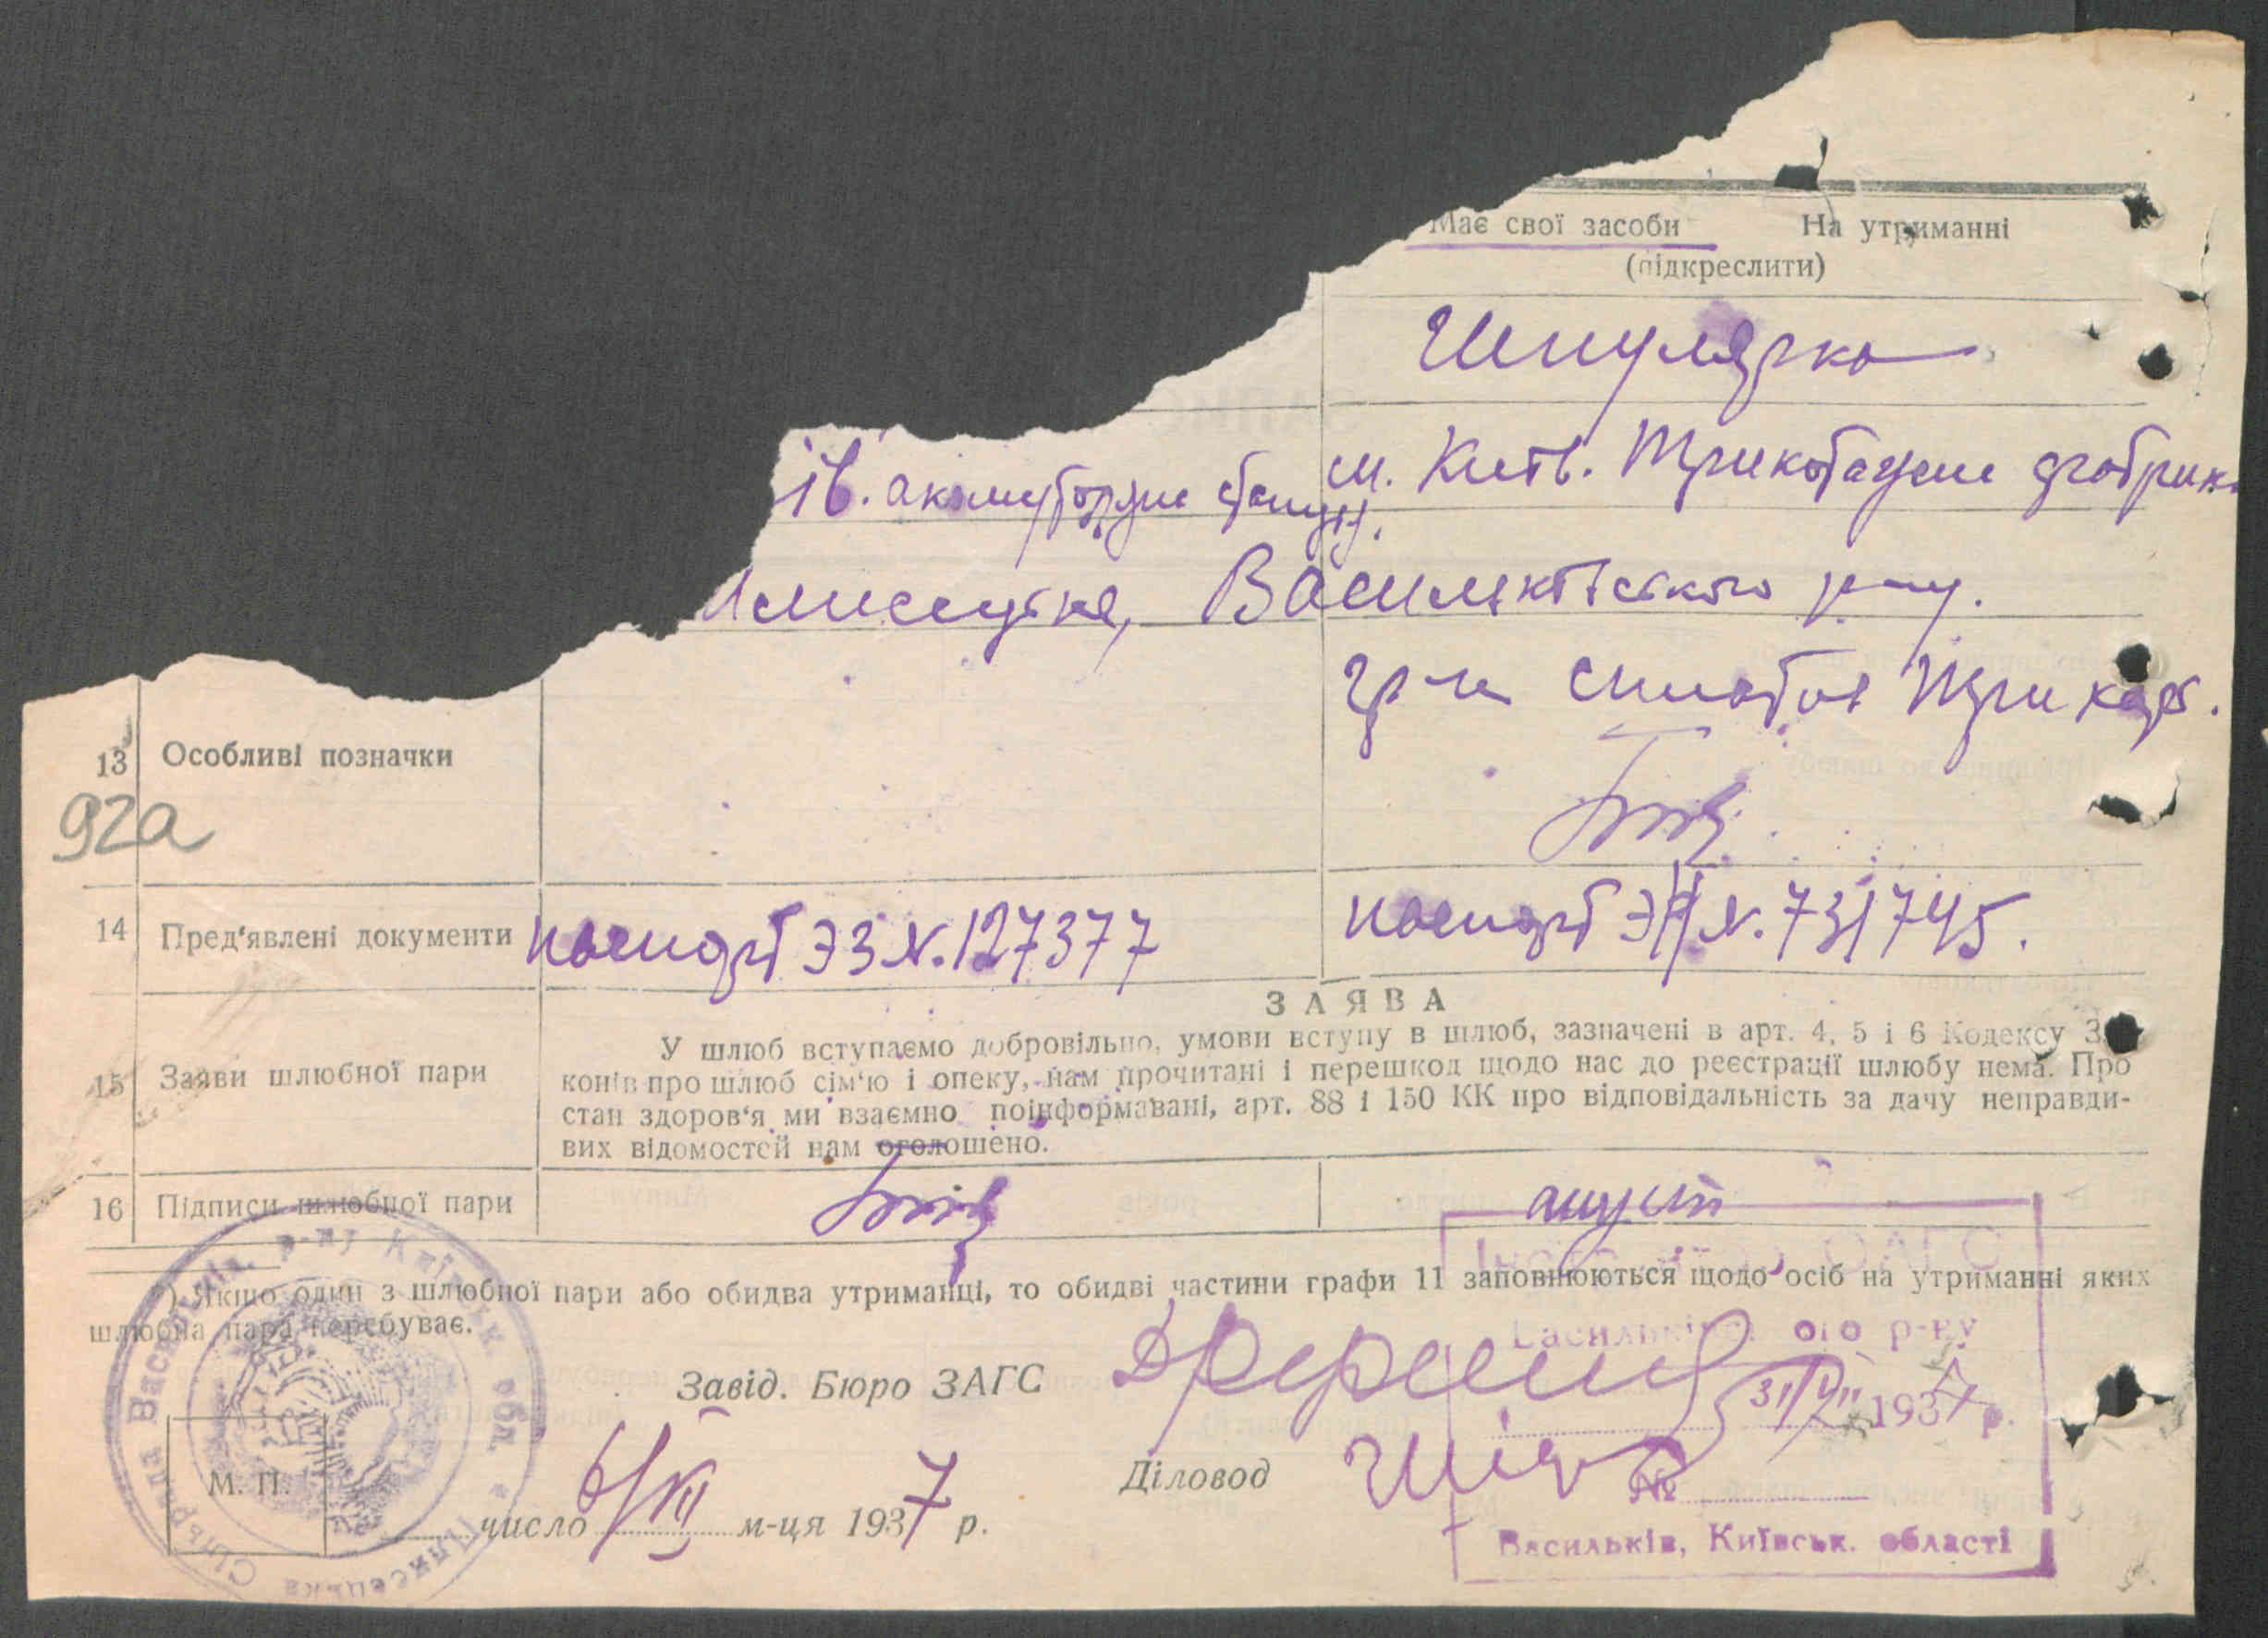 Має свої засоби На утриманні
(підкреслити)
Шпулярка
м. Київ. Трикотажне фабрик.
Васильківського р-ну.
13 Особливі позначки
92а
14 Пред'явлені документи паспорт ЭЗ №.127377 паспорт №.731745.
ЗАЯВА
15 Заяви шлюбної пари
У шлюб вступаємо добровільно, умови вступу в шлюб, зазначені в арт. 4, 5 і 6 Кодексу За-
конів про шлюб сім'ю і опеку, нам прочитані і перешкод щодо нас до реєстрації шлюбу нема. Про
стан здоров'я ми взаємно поінформавані, арт. 88 і 150 КК про відповідальність за дачу неправди-
вих відомостей нам оголошено.
16 Підписи шлюбної пари
) Якщо один з шлюбної пари або обидва утриманці, то обидві частини графи 11 заповнюються щодо осіб на утриманні яких
шлюбна пара перебуває.
Завід. Бюро ЗАГС
ЗАГС
р-ну
1937 р.
Діловод
№
М. П.
число 6/XII м-ця 1937 р.
Васильків, Київськ. області
Сільрада Васильків. р-ну Київськ. обл. Плисецька